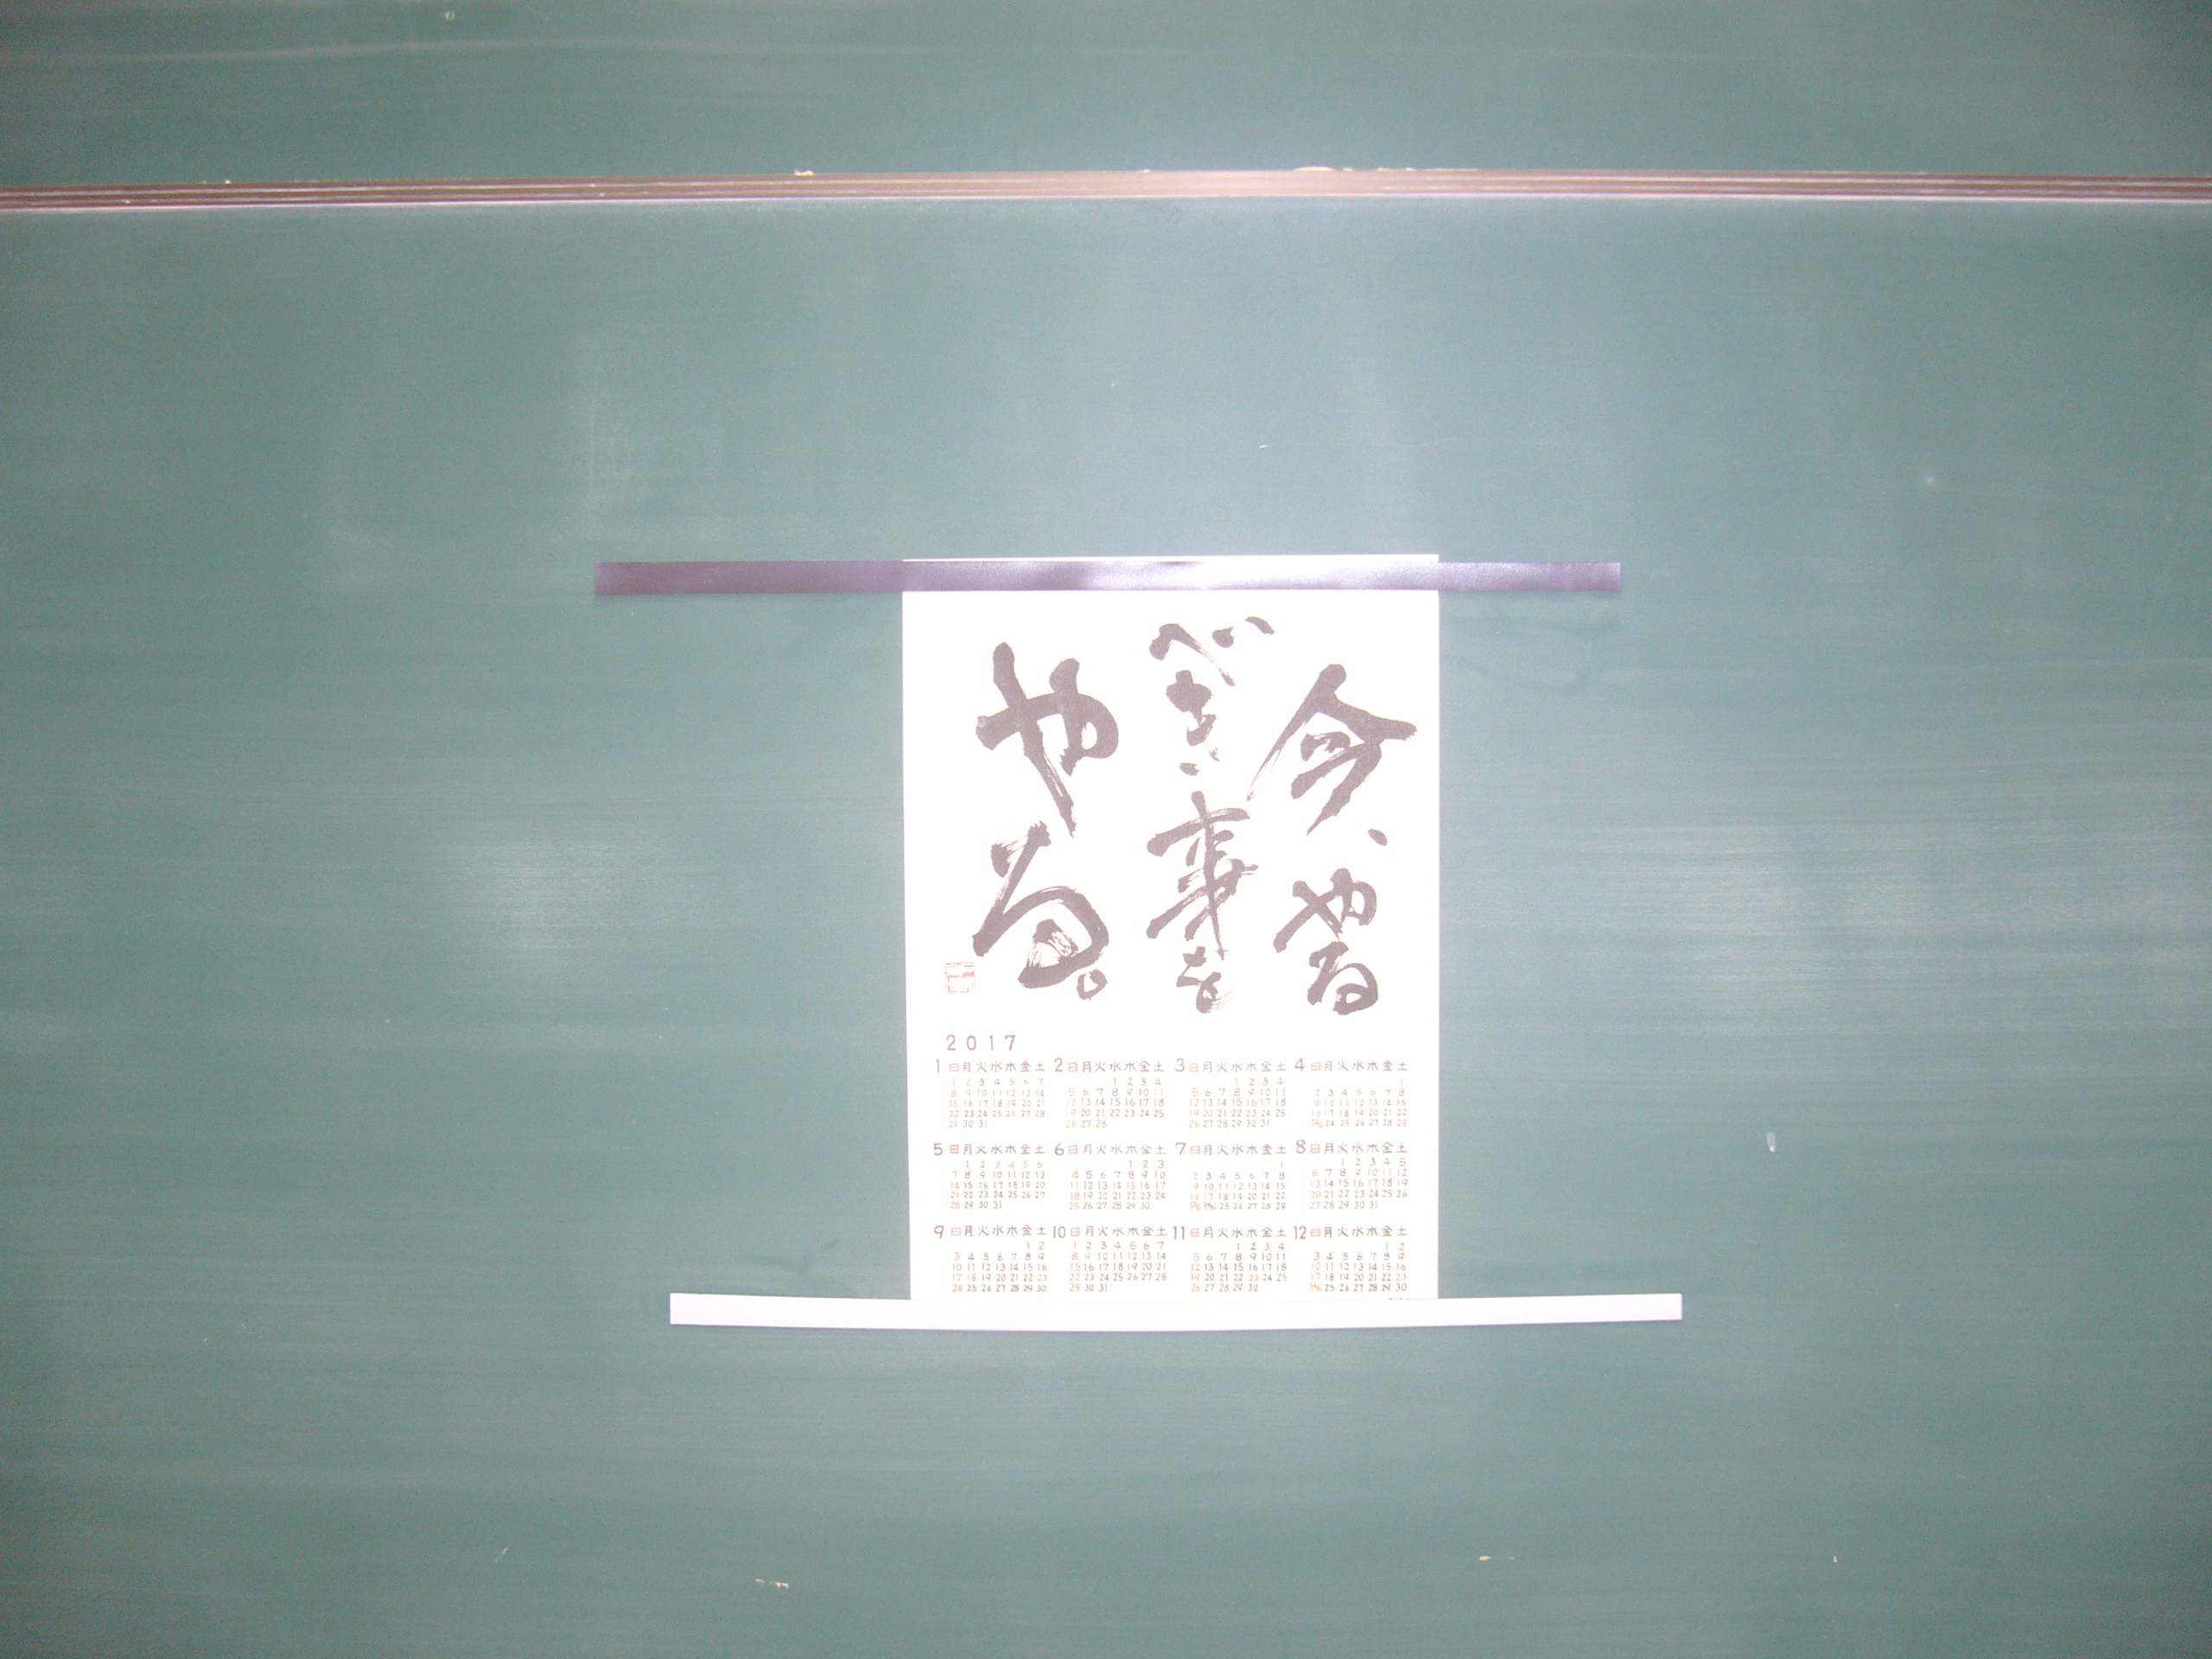 今、やる
べき事を
やる。
2017
1 日月火水木金土
1 2 3 4 5 6 7
8 9 10 11 12 13 14
15 16 17 18 19 20 21
22 23 24 25 26 27 28
29 30 31
2 日月火水木金土
1 2 3 4
5 6 7 8 9 10 11
12 13 14 15 16 17 18
19 20 21 22 23 24 25
26 27 28
3 日月火水木金土
1 2 3 4
5 6 7 8 9 10 11
12 13 14 15 16 17 18
19 20 21 22 23 24 25
26 27 28 29 30 31
4 日月火水木金土
1
2 3 4 5 6 7 8
9 10 11 12 13 14 15
16 17 18 19 20 21 22
23/30 24 25 26 27 28 29
5 日月火水木金土
1 2 3 4 5 6
7 8 9 10 11 12 13
14 15 16 17 18 19 20
21 22 23 24 25 26 27
28 29 30 31
6 日月火水木金土
1 2 3
4 5 6 7 8 9 10
11 12 13 14 15 16 17
18 19 20 21 22 23 24
25 26 27 28 29 30
7 日月火水木金土
1
2 3 4 5 6 7 8
9 10 11 12 13 14 15
16 17 18 19 20 21 22
23/30 24/31 25 26 27 28 29
8 日月火水木金土
1 2 3 4 5
6 7 8 9 10 11 12
13 14 15 16 17 18 19
20 21 22 23 24 25 26
27 28 29 30 31
9 日月火水木金土
1 2
3 4 5 6 7 8 9
10 11 12 13 14 15 16
17 18 19 20 21 22 23
24 25 26 27 28 29 30
10 日月火水木金土
1 2 3 4 5 6 7
8 9 10 11 12 13 14
15 16 17 18 19 20 21
22 23 24 25 26 27 28
29 30 31
11 日月火水木金土
1 2 3 4
5 6 7 8 9 10 11
12 13 14 15 16 17 18
19 20 21 22 23 24 25
26 27 28 29 30
12 日月火水木金土
1 2
3 4 5 6 7 8 9
10 11 12 13 14 15 16
17 18 19 20 21 22 23
24/31 25 26 27 28 29 30